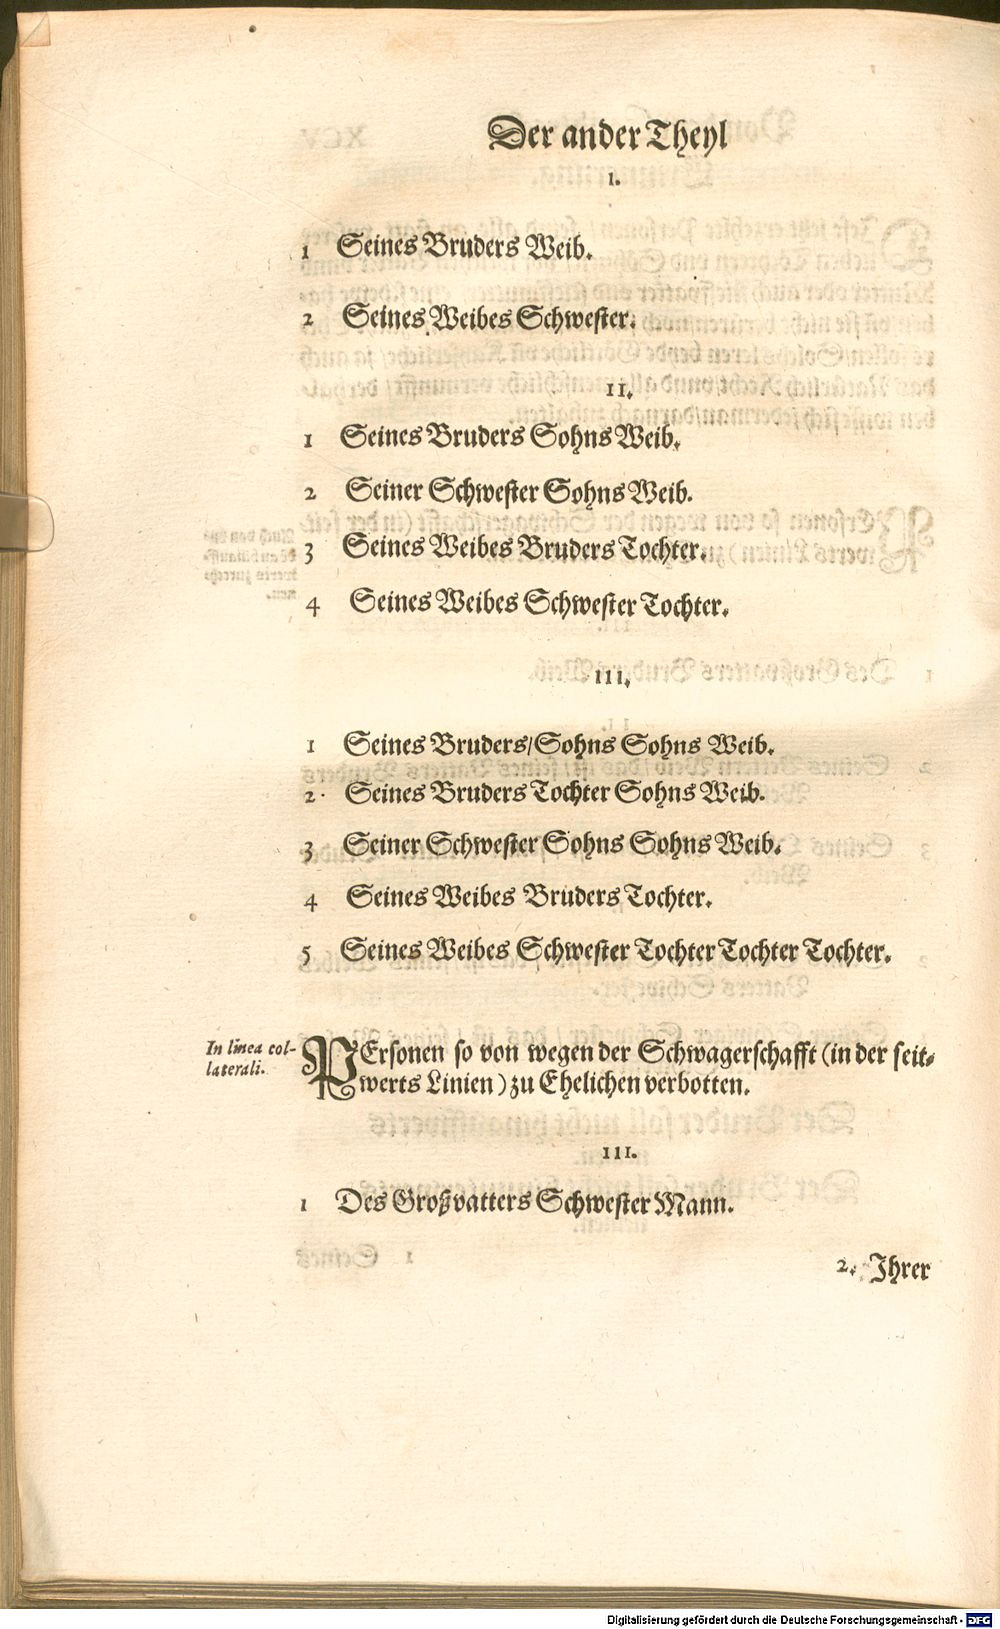 Der ander Theyl
I.
1 Seines Bruders Weib.
2 Seines Weibes Schwester.
II.
1 Seines Bruders Sohns Weib.
2 Seiner Schwester Sohns Weib.
3 Seines Weibes Bruders Tochter.
4 Seines Weibes Schwester Tochter.
III.
1 Seines Bruders/Sohns Sohns Weib.
2 Seines Bruders Tochter Sohns Weib.
3 Seiner Schwester Sohns Sohns Weib.
4 Seines Weibes Bruders Tochter.
5 Seines Weibes Schwester Tochter Tochter Tochter.
In linea col-
laterali.
PErsonen so von wegen der Schwagerschafft (in der seit-
werts Linien) zu Ehelichen verbotten.
III.
1 Des Großvatters Schwester Mann.
2. Ihrer
Digitalisierung gefördert durch die Deutsche Forschungsgemeinschaft - DFG